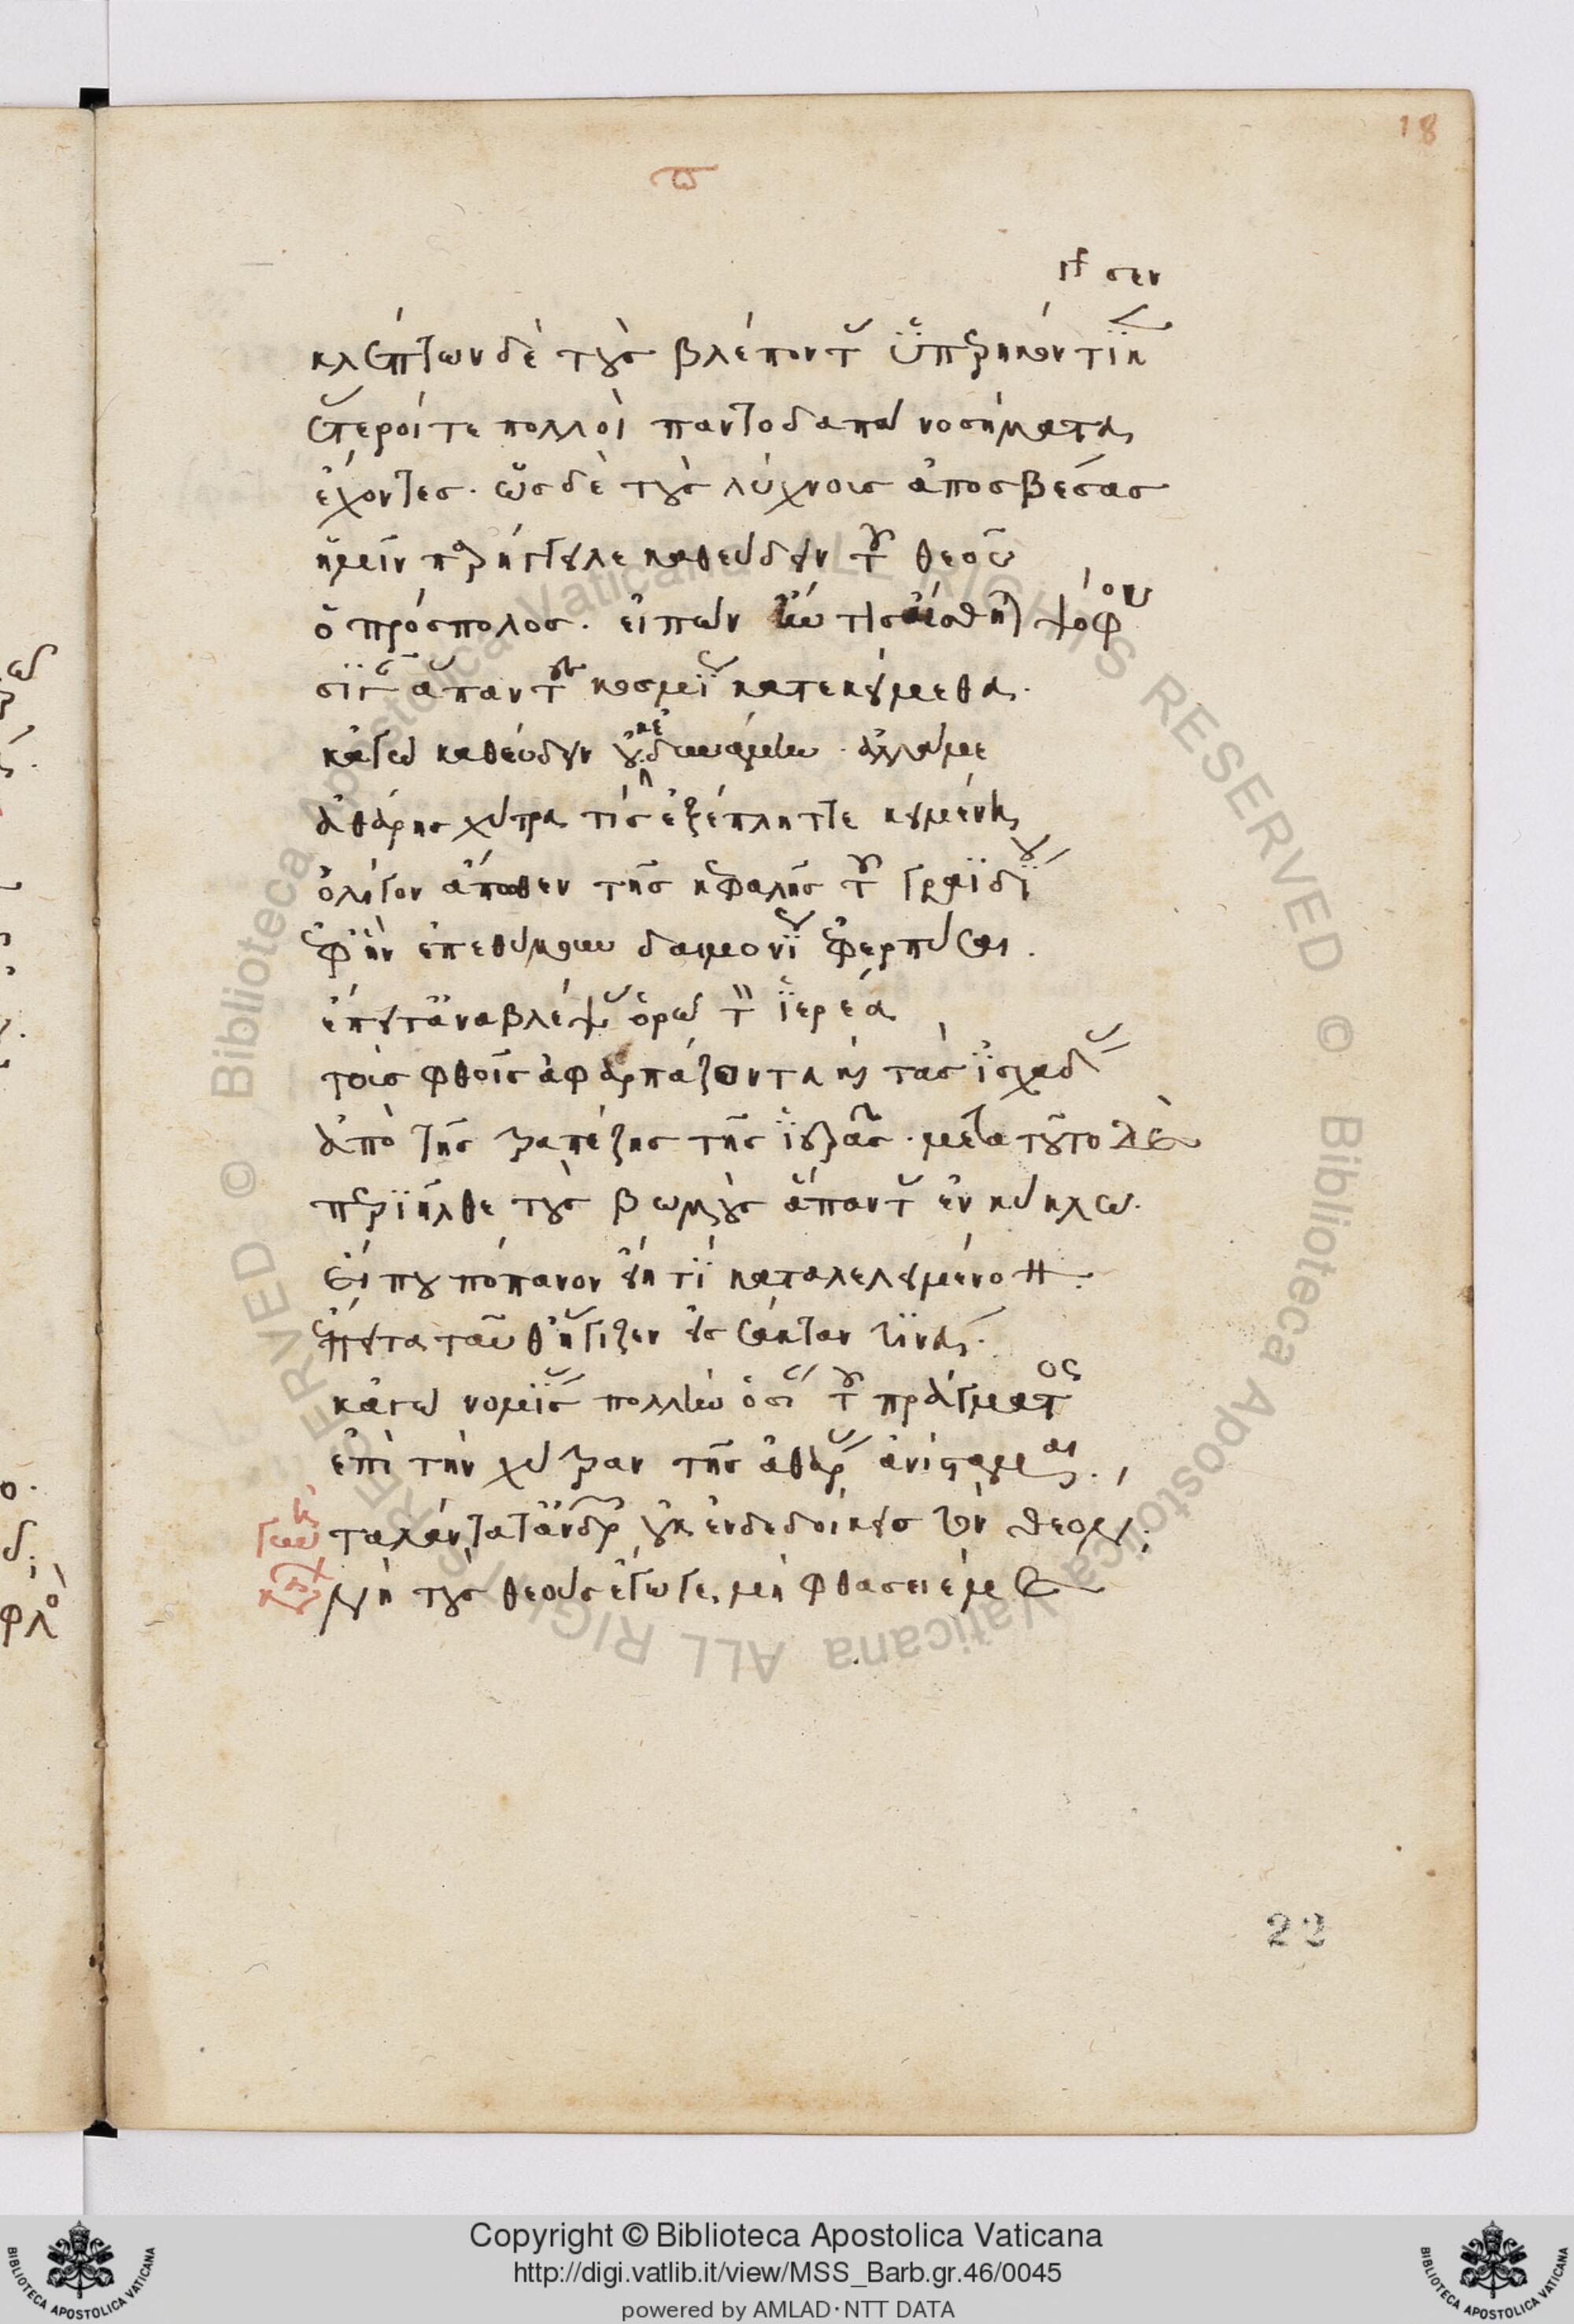 18
ω
γρ σεν
κλέπτων δὲ τοὺς βλέποντας ὑπερηκόντικεν
ἕτεροί τε πολλοὶ παντοδαπὰ νοσήματα
ἔχοντες. ὡς δὲ τοὺς λύχνους ἀποσβέσας
ἡμῖν παρήγγειλε καθεύδειν τοῦ θεοῦ
ὁ πρόσπολος. εἰπὼν ἤν τις αἴσθηται ψόφου
σιγᾶν ἅπαντες κοσμίως κατεκείμεθα.
κἀγὼ καθεύδειν οὐκ ἐδυνάμην. ἀλλά με
ἀθάρης χύτρα τις ἐξέπληττε κειμένη
ὀλίγον ἄπωθεν τῆς κεφαλῆς τοῦ γραϊδίου
ἐφ' ἣν ἐπεθύμουν δαιμονίως ἐφερπύσαι.
ἔπειτ' ἀναβλέψας ὁρῶ τὸν ἱερέα
τοὺς φθοῖς ἀφαρπάζοντα καὶ τὰς ἰσχάδας
ἀπὸ τῆς τραπέζης τῆς ἱερᾶς. μετὰ τοῦτο δὲ
περιῆλθε τοὺς βωμοὺς ἅπαντας ἐν κύκλω.
εἴ που πόπανον εἴη τι καταλελειμμένον.
ἔπειτα ταῦθ' ἥγιζεν εἰς σάκταν τινά.
κἀγὼ νομίσας πολλὴν ὁσίαν τοῦ πράγματος
ἐπὶ τὴν χύτραν τῆς ἀθάρης ἀνίσταμαι.
γυνὴ ταλάντατ' ἀνδρῶν οὐκ ἐνδεδοίκεις τὸν θεόν;
καρ νὴ τοὺς θεοὺς ἔγωγε, μὴ φθάσειέ με
22
Copyright © Biblioteca Apostolica Vaticana
http://digi.vatlib.it/view/MSS_Barb.gr.46/0045
powered by AMLAD·NTT DATA